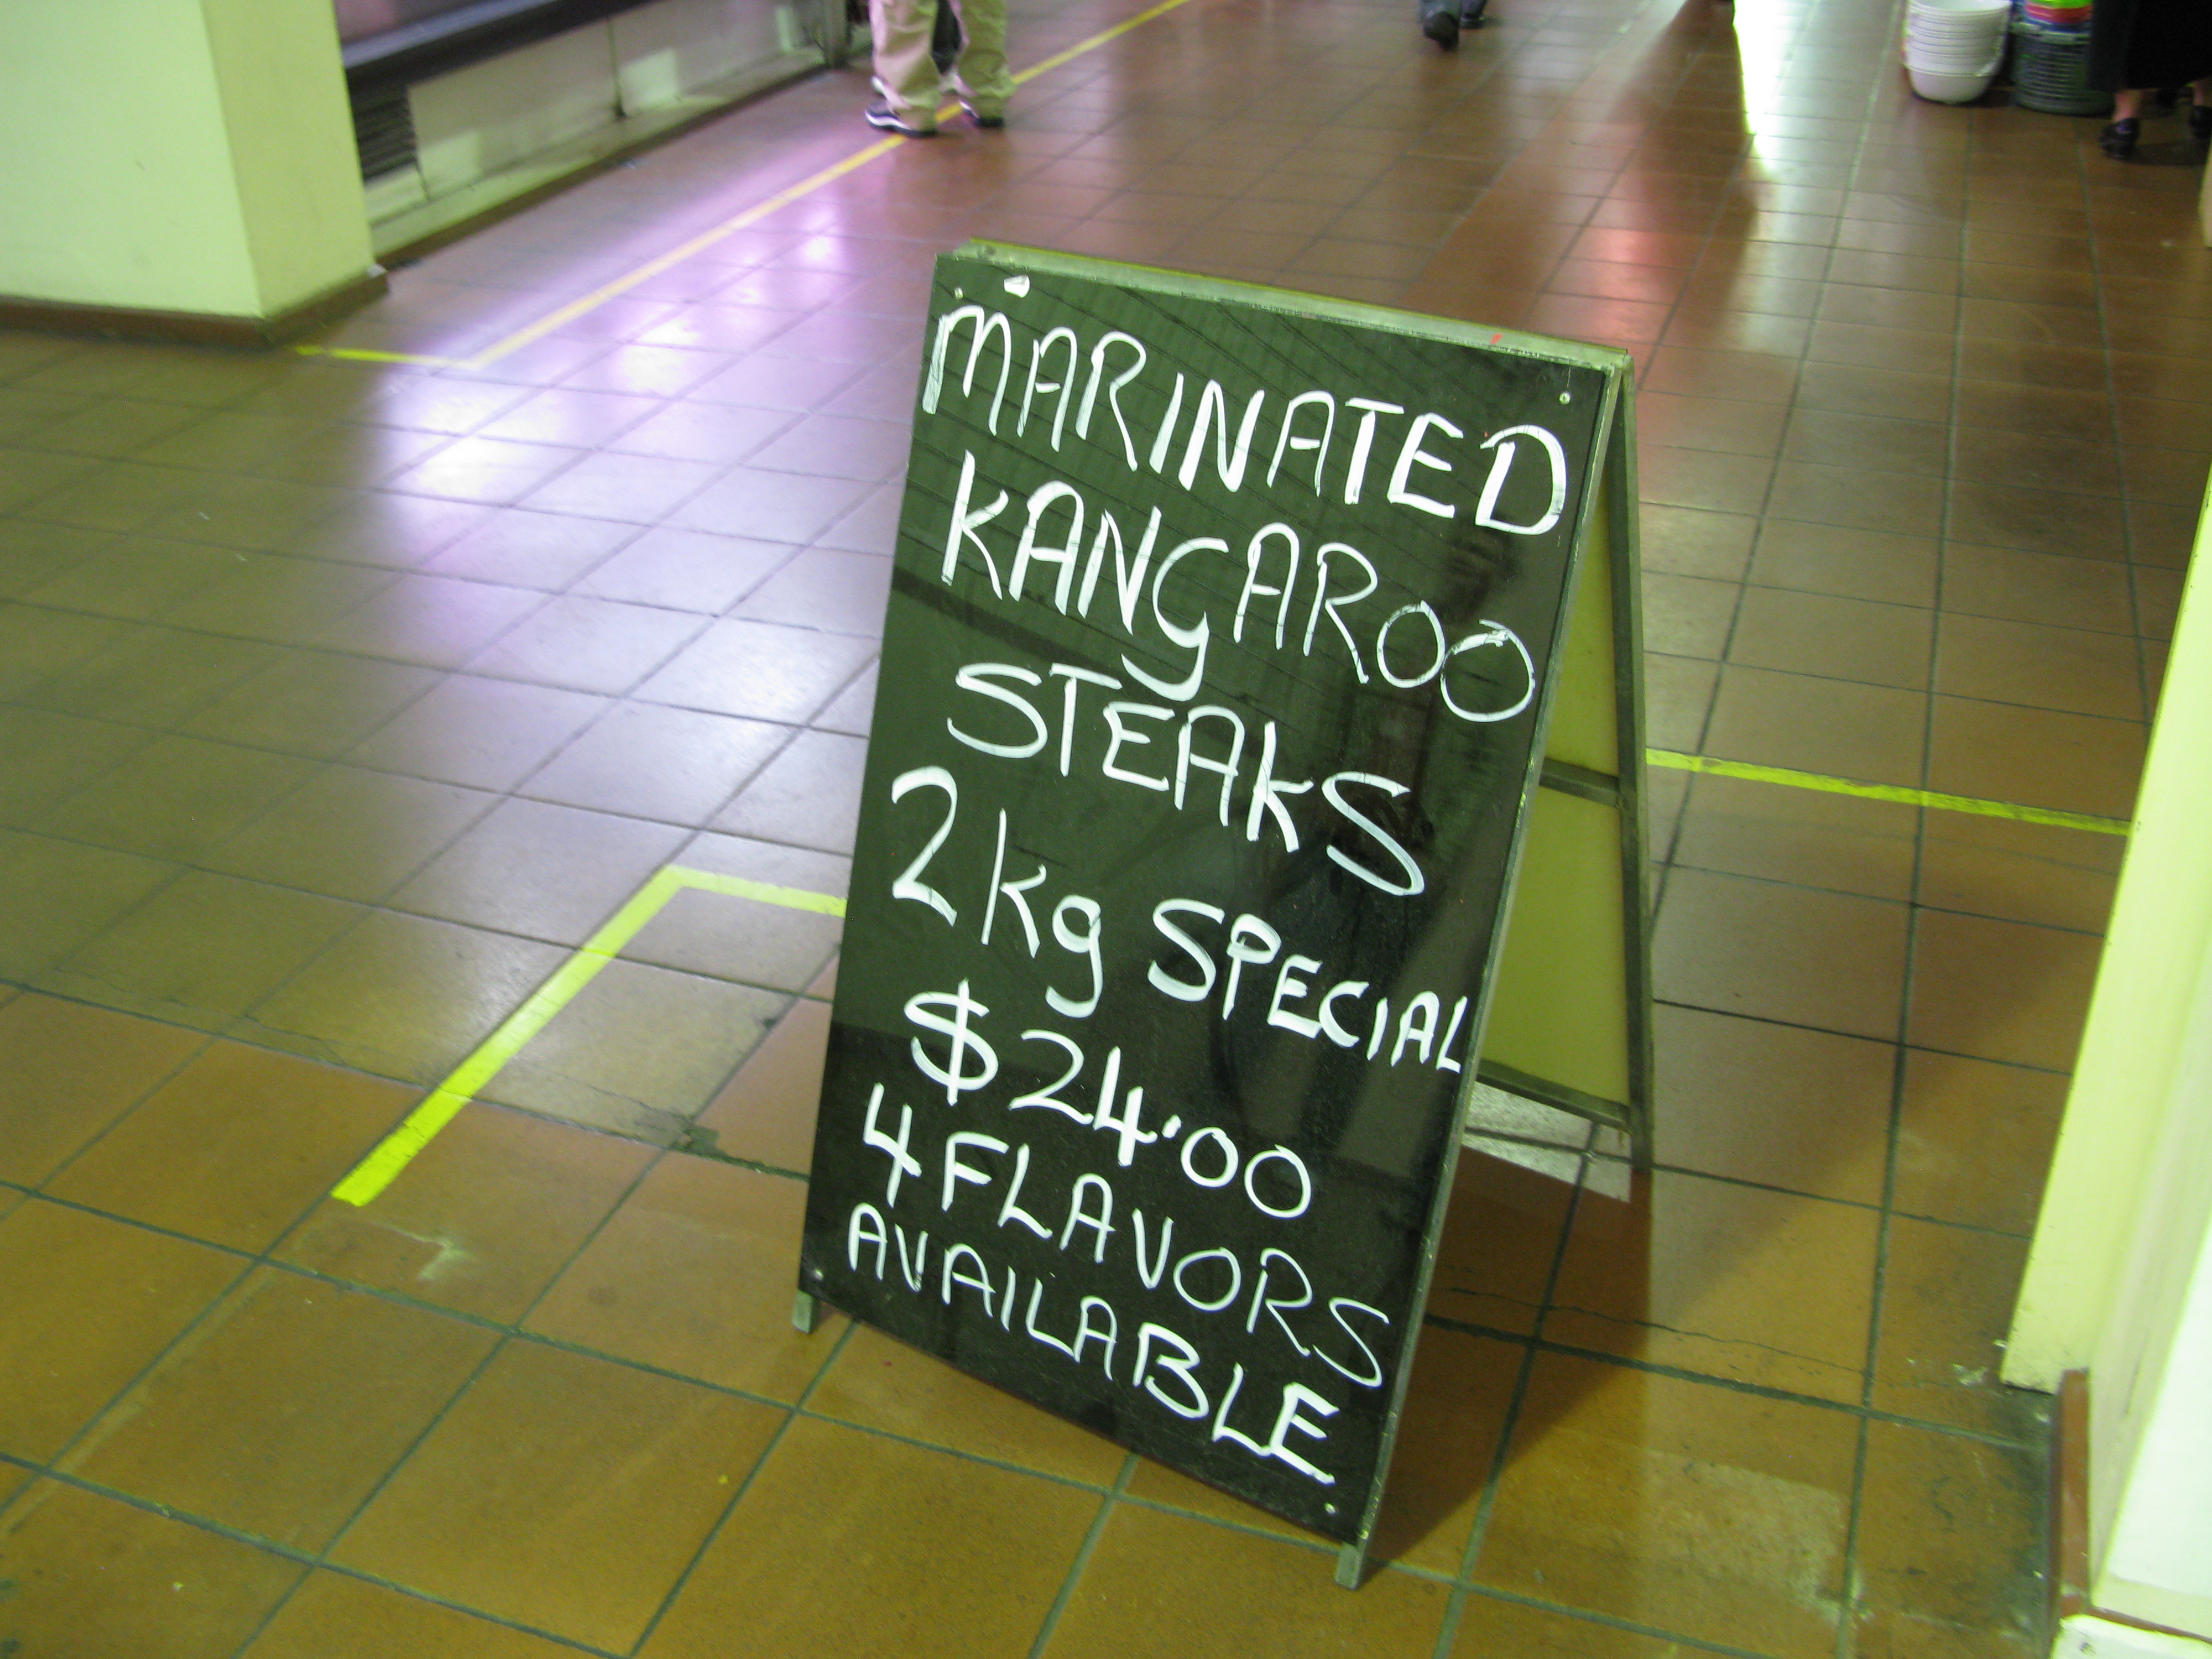 MARINATED
KANGAROO
STEAKS
2kg SPECIAL
$24.00
4 FLAVORS
AVAILABLE